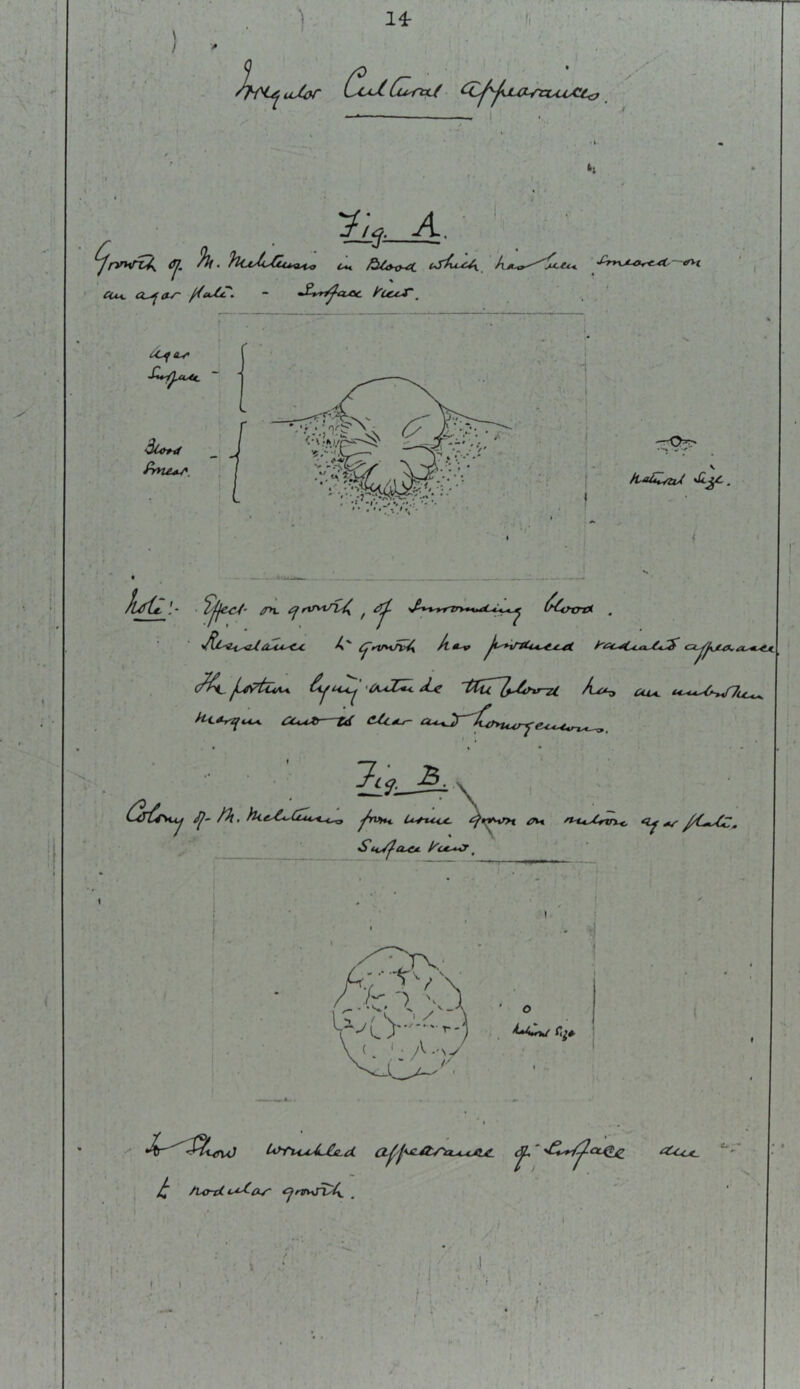 14
Irregular Cultural Appearances.
Fig. A.
Growth of M. Melitensis in Blood which has been smeared on
an agar plate. - Surface View.
Agar
Surface -
Blood
Smear. -
Natural Size.
Note:- Effect on growth, of surrounding blood.
Resistance to growth has produced appearance.
The portion lying outside the blood has an
margin and is clear and
Fig. B.
Colony of M. Melitensis from urine grown on nutrose agar plate.
Surface View.
Natural Size
To show wrinkled appearance of surface due
to nodular growth.